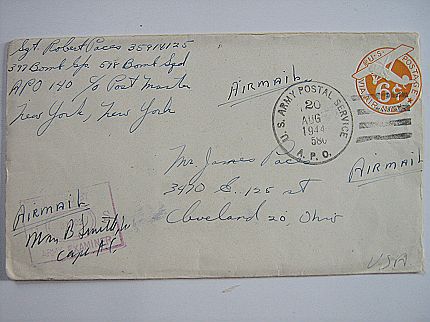 Sgt. Robert Paces 35914125
397 Bomb Gp. 598 Bomb Sqd
APO 140 c/o Post Master
New York, New York
Airmail
U.S. POSTAGE
6¢
VIA AIR MAIL
U.S. ARMY POSTAL SERVICE
20
AUG
1944
A.P.O.
Mr. James Paces
3490 E. 125 st
Cleveland 20, Ohio
Airmail
Airmail
ARMY EXAMINER
Capt.
USA